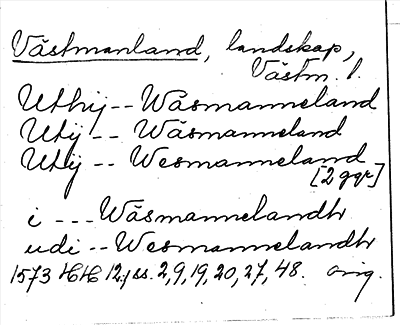 Västmanland, landskap,
Västm. l.
Uthij -- Wäsmanneland
Utij -- Wäsmanneland
Utij -- Wesmanneland
[2 ggr]
i --- Wäsmannelandh
udi -- Wesmannelandh
1573 HH 12:j ss. 2, 9, 19, 20, 27, 48. orig.